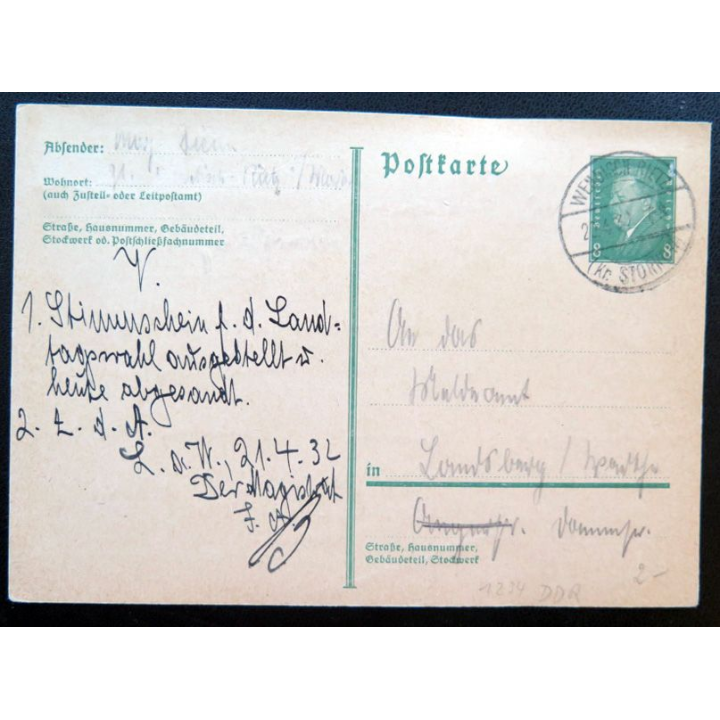 Absender:
Wohnort:
(auch Zustell- oder Leitpostamt)
Straße, Hausnummer, Gebäudeteil,
Stockwerk od. Postschließfachnummer
V.
1. Stimmschein f. d. Land=
tagswahl ausgestellt u.
heute abgesandt.
2. Z. d. A.
L. a. W., 21.4.32
Der Magistrat
J. A.
Postkarte
8 8
WENDISCH
(Kr. STORKOW)
An das
Meldeamt
in Landsberg / Warthe
Dammstr.
Straße, Hausnummer,
Gebäudeteil, Stockwerk
1274 DDR
2-